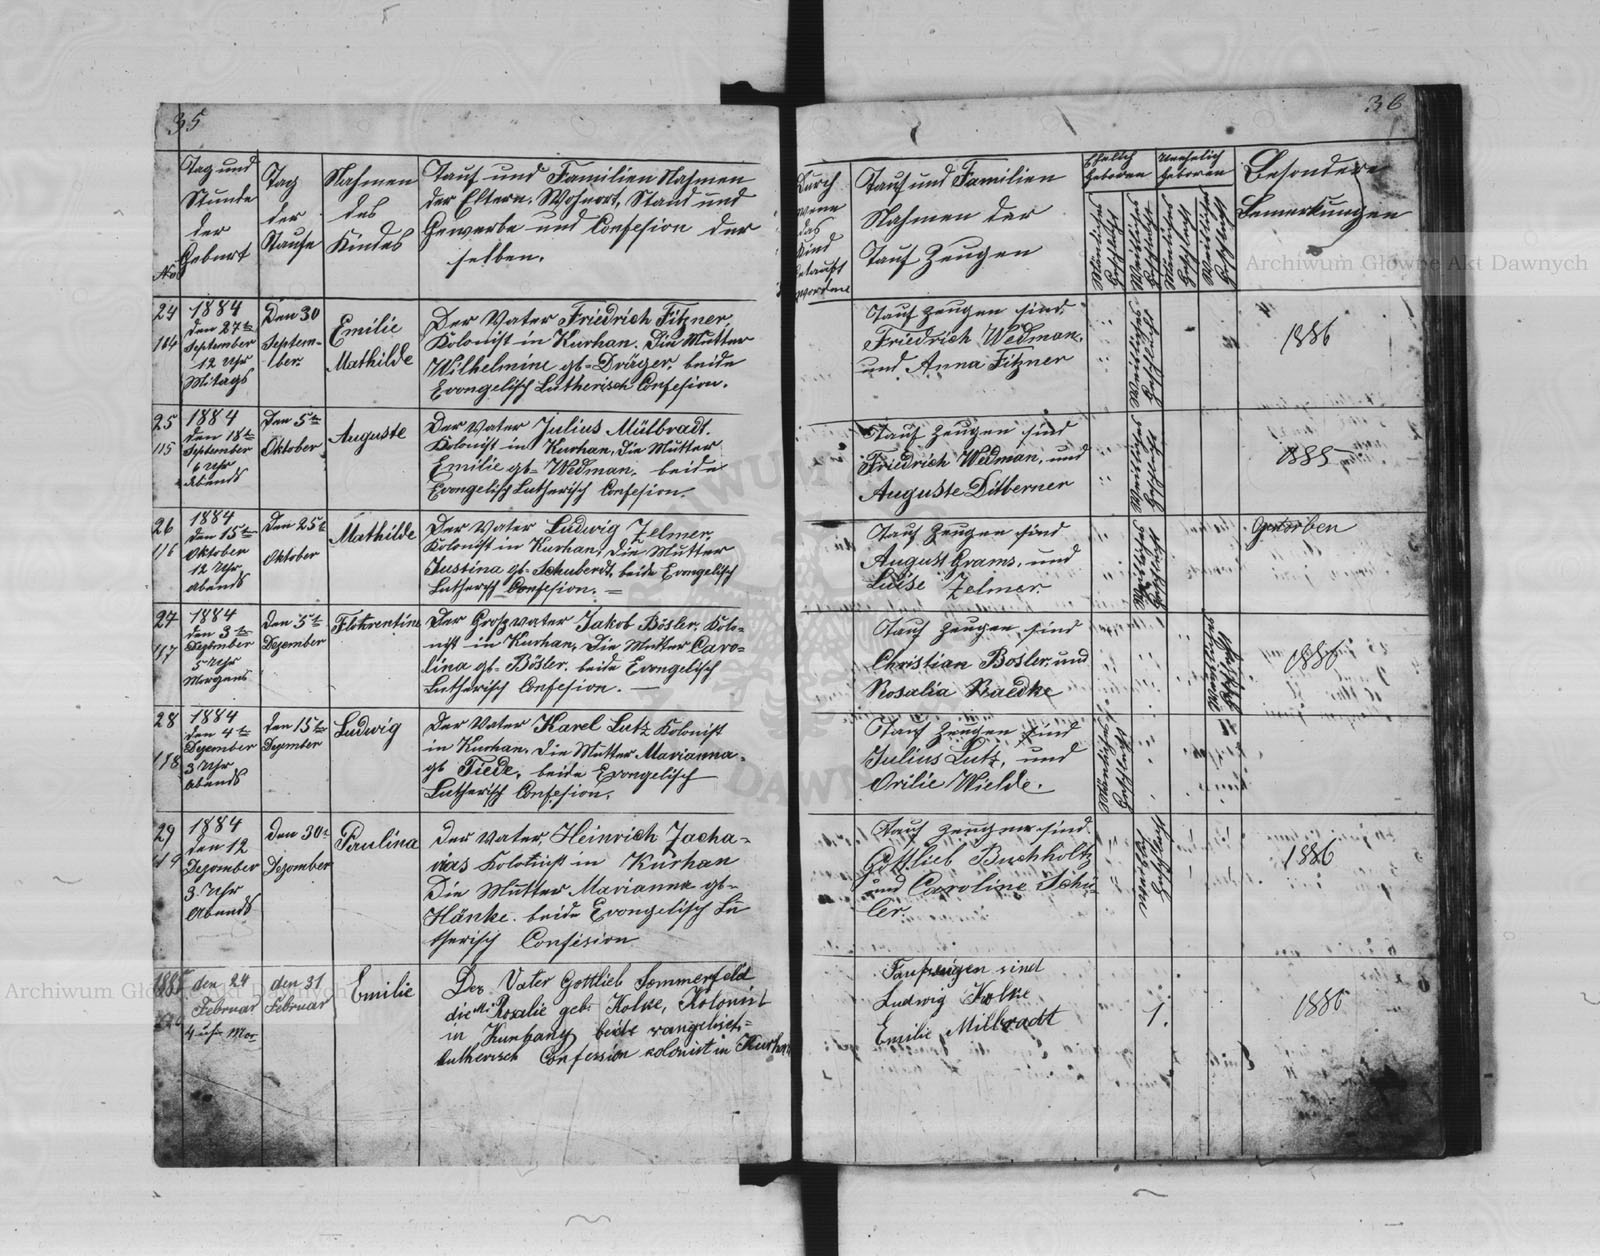 35
Tag und
Stunde
der
Geburt
No
Tag
der
Taufe
Nahmen
des
Kindes
Tauf und Familien Nahmen
der Eltern, Wohnort, Stand und
Gewerbe und Confesion der
selben.
24
114
1884
den 27te
September
12 Uhr
Mitags
Den 30
Septem-
ber.
Emilie
Mathilde
Der Vater Friedrich Fitzner
Kolonist in Kurhan. Die Mutter
Wilhelmine gb= Dräger, beide
Evongelisch Lutherisch Confesion.
25
115
1884
den 18te
September
6 Uhr
Abends
Den 5te
Oktober
Auguste
Der Vater Julius Mülbradt.
Kolonist in Kurhan, Die Mutter
Emilie gb= Wedman. beide
Evongelisch Lutherisch Confesion.
26
116
1884
den 15te
Oktober
12 Uhr
Abends
Den 25t
Oktober
Mathilde
Der Vater Ludwig Zelmer.
Kolonist in Kurhan, Die Mutter
Justina gb= Schuberdt, beide Evongelisch
Lutherisch Confesion. =
27
117
1884
den 3te
Dezember
5 Uhr
Morgens
Den 5te
Dezember
Flohrentine
Der Groszvater Jakob Bösler, Kolo-
nist in Kurhan, Die Mutter Caro-
lina gb= Bösler. beide Evongelisch
Lutherisch Confesion. —
28
118
1884
den 4te
Dezember
3 Uhr
Abends
den 15te
Dezember
Ludwig
Der Vater Karel Lutz Kolonist
in Kurhan, Die Mutter Marianna
gb Tiede, beide Evongelisch
Lutherisch Confesion.
29
119
1884
den 12
Dezember
3 Uhr
Abends
Den 30t
Dezember
Paulina
Der Vater, Heinrich Zacha-
rias Kolonist in Kurhan
Die Mutter Marianna gb=
Hänke. beide Evongelisch Lu
therisch Confesion
1885
den 24
Februar
4 uhr Mor
den 31
Februar
Emilie
Der Vater Gottlieb Sommerfeld
die Rosalie geb: Kolke, Kolonist
in beide
lutherisch Confession kolonist in Kurhan
36
Durch
wene
das
Kind
getauft
worden
Tauf und Familien
Nahmen der
Tauf Zeugen
Ehelich
Geboren
Unehelich
Geboren
Mänliches
Geschlecht
Weibliches
Geschlecht
Mänliches
Geschlecht
Weibliches
Geschlecht
Besondere
Bemerkungen
Tauf Zeugen sind,
Friedrich Wedman,
und Anna Fitzner
Weibliches
Geschlecht
1886
Tauf Zeugen sind
Friedrich Wedman, und
Auguste Ditberner
Weibliches
Geschlecht
1885
Tauf Zeugen sind
August Grams, und
Luise Zelmer.
Weibliches
Geschlecht
Gestorben
Tauf Zeugen, sind
Christian Bosler, und
Rosalia Raedke
Weibliches
Geschlecht
1886
Tauf Zeugen sind
Julius Lutz, und
Orilie Wielde.
Mänliches
Geschlecht
Tauf Zeugen sind
Gottlieb Buchholtz
und Caroline Schü-
ler.
Geschlecht
1886
Taufzeugen sind
Ludwig Kolke
Emilie Milbradt
1.
1886
Archiwum Główne Akt Dawnych
Archiwum Główne Akt Dawnych